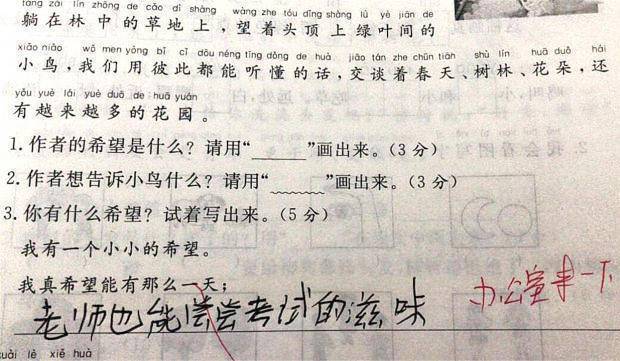 tǎng zài lín zhōng de cǎo dì shàng wàng zhe tóu dǐng shàng lǜ yè jiān de
躺在林中的草地上，望着头顶上绿叶间的
xiǎo niǎo wǒ men yòng bǐ cǐ dōu néng tīng dǒng de huà jiāo tán zhe chūn tiān shù lín huā duǒ hái
小鸟，我们用彼此都能听懂的话，交谈着春天、树林、花朵，还
yǒu yuè lái yuè duō de huā yuán
有越来越多的花园。
1. 作者的希望是什么？请用“____”画出来。（3分）
2. 作者想告诉小鸟什么？请用“﹏﹏”画出来。（3分）
3. 你有什么希望？试着写出来。（5分）
我有一个小小的希望。
我真希望能有那么一天；
老师也能尝尝考试的滋味
办公室来一下
kuài lè xiě huà